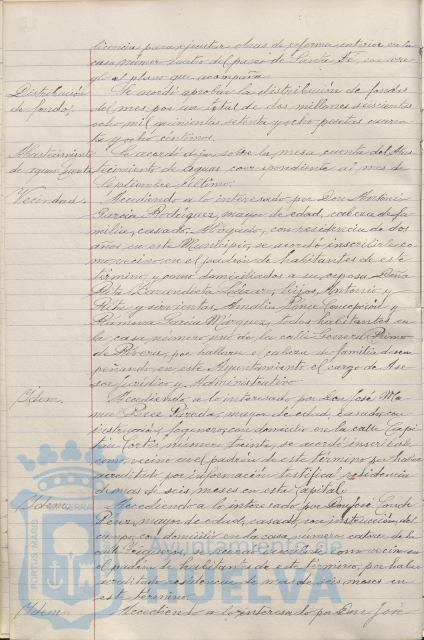 licencia para ejecutar obras de reforma interior en la
casa número cuatro del paseo de Santa Fé, con arre
glo al plano que acompaña.
Distribución
de fondos.
Se acordó aprobar la distribución de fondos
del mes por un total de dos millones seiscientas
ocho mil quinientas setenta y ocho pesetas cuaren
ta y ocho céntimos.
Abastecimiento
de aguas, cuenta
Se acordó dejar sobre la mesa cuenta del Abas
tecimiento de Aguas correspondiente al mes de
Septiembre último.
Vecindad.
Accediendo a lo interesado por Don Antonio
García Rodríguez, mayor de edad, cabeza de fa
milia, casado, Abogado, con residencia de dos
años en este Municipio, se acordó inscribirle co
mo vecino en el padrón de habitantes de este
término y como domiciliados a su esposa Doña
Rita hijos, Antonio y
Rita y sirvientas, Amalia Ponce Concepción y
Ramona García Márquez, todos habitantes en
la casa número uno de la calle General Primo
de Rivera, por hallarse el cabeza de familia desem
peñando en este Ayuntamiento el cargo de Ase
sor Jurídico y Administrativo.
Idem.
Accediendo a lo interesado por Don José Ma
nuel Pérez mayor de edad, casado, con
instrucción, fogonero, con domicilio en la calle Capi
tán Cortés, número treinta, se acordó inscribirle
como vecino en el padrón de este término por haber
acreditado por información testifical residencia
de mas de seis meses en esta Capital.
Idem.
Accediendo a lo interesado por Don José Conde
Pérez, mayor de edad, casado, con instrucción, del
campo, con domicilio en la casa número catorce de la
calle se acordó inscribirle como vecino en
el padrón de habitantes de este término, por haber
acreditado residencia de mas de seis meses en
este término.
Idem.
Accediendo a lo interesado por Don José
PORTUS MARIS
TERRÆ
Ayuntamiento de
HUELVA